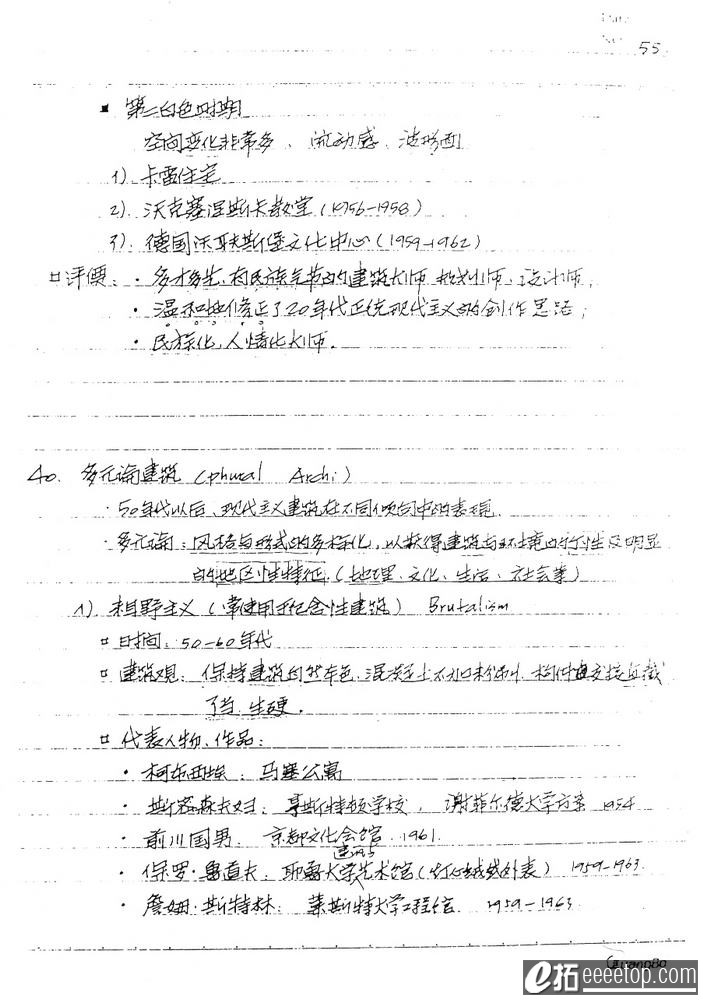 55
▪ 第二白色时期
空间变化非常多、流动感、波形面
1). 卡雷住宅
2). 沃克赛涅斯卡教堂(1956-1958)
3). 德国沃耳夫斯堡文化中心(1959-1962)
□评價: · 多才多艺,有民族气节的建筑大师、规划师、设计师;
· 温和地修正了20年代正统现代主义的创作思路;
· 民族化,人情化大师.
40. 多元论建筑 (phural Archi)
· 50年代以后、现代主义建筑在不同倾向中的表现.
· 多元论:风格与形式的多样化,以获得建筑与环境的个性及明显
的地区性特征.(地理、文化、生活、社会等)
1) 粗野主义(常使用于纪念性建筑) Brutalism
□ 时间: 50-60年代
□ 建筑观: 保持建筑自然本色,混凝土不加粉刷,构件直接
了当、生硬.
□ 代表人物、作品:
· 柯布西埃: 马塞公寓
· 斯密森夫妇: 亨斯特顿学校, 谢菲尔德大学方案 1954
· 前川国男: 京都文化会馆 1961.
建筑与
· 保罗·鲁道夫: 耶鲁大学艺术馆(灯心绒外表) 1959-1963.
· 詹姆·斯特林: 莱斯特大学工程馆. 1959-1963
e拓 eeeetop.com